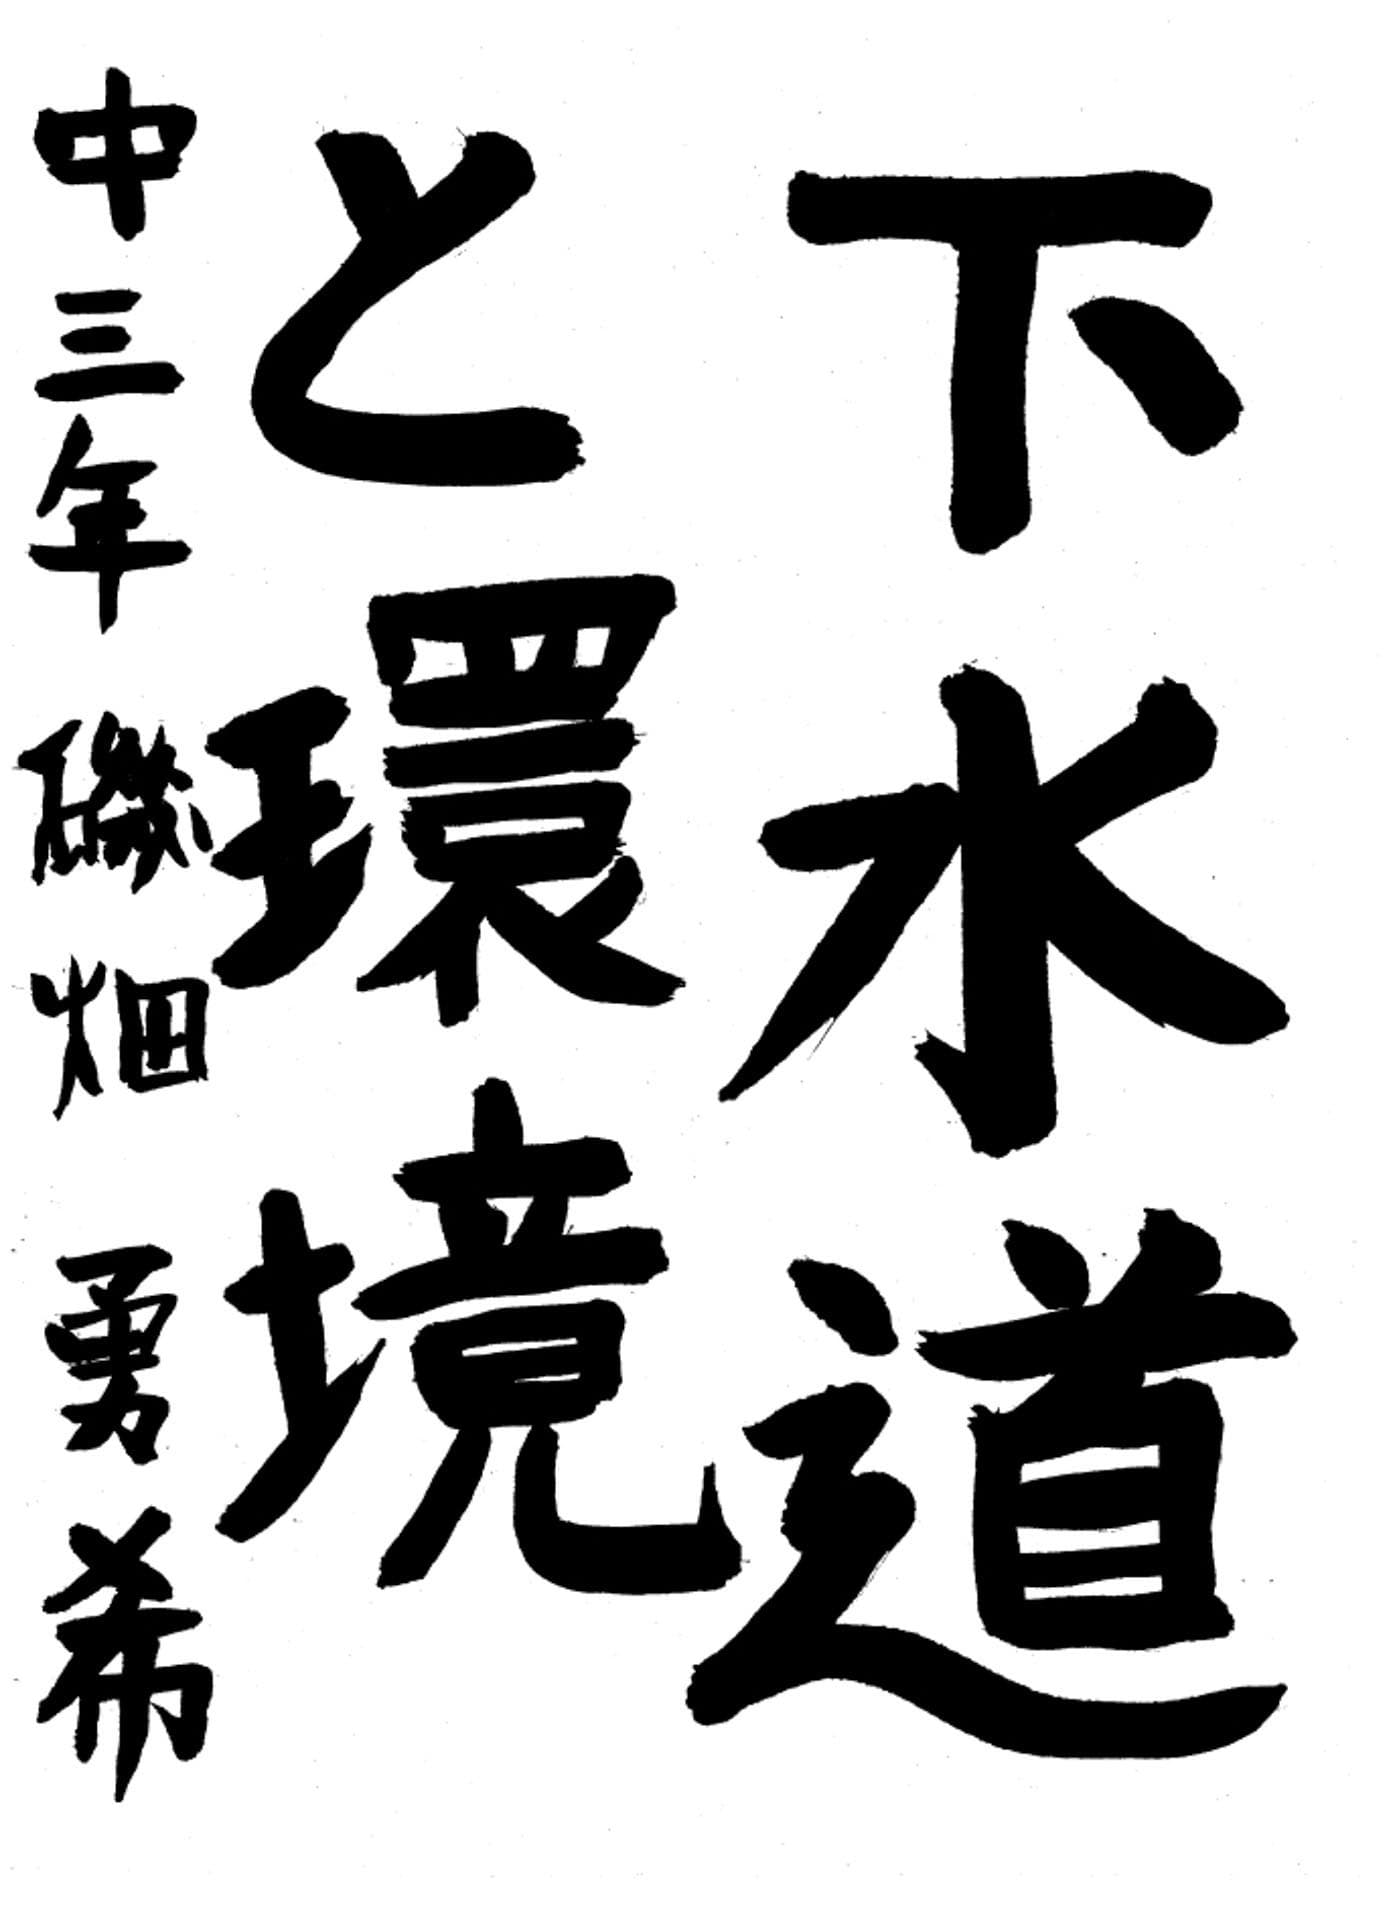 下水道
と環境
中三年 磯畑 勇希